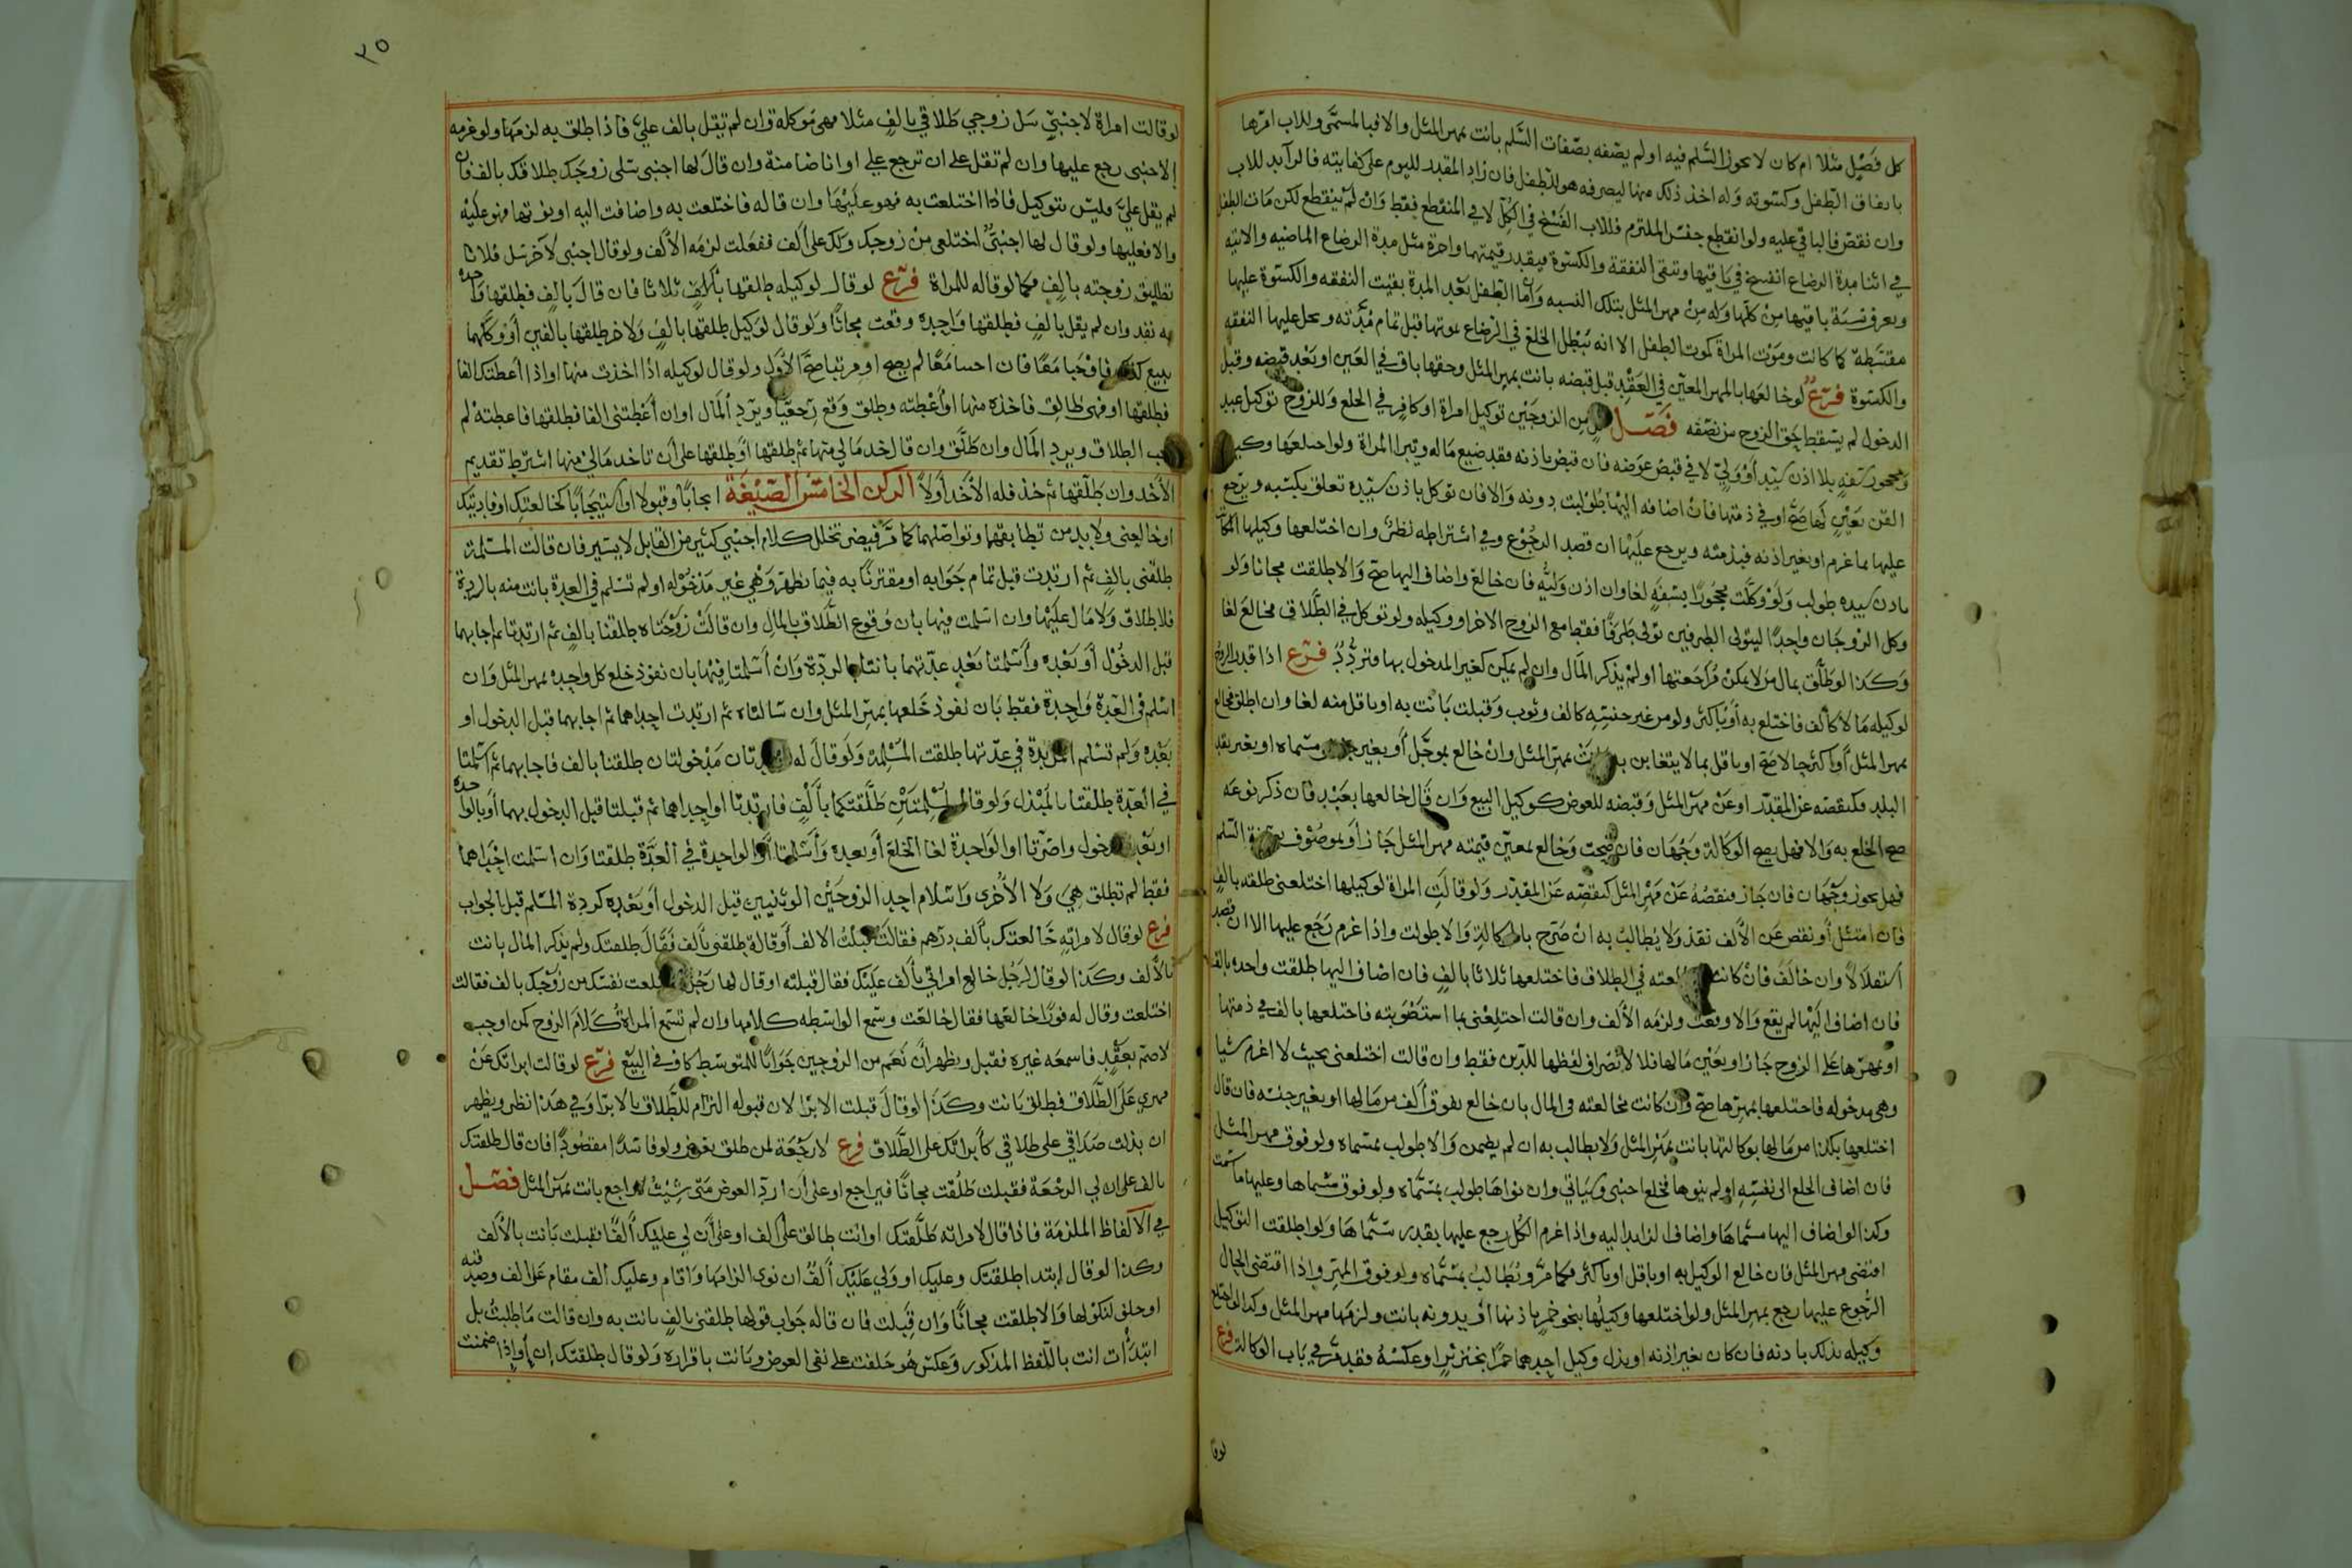 كل فصيل مثلا ام كان لا يجوز السلم فيه او لم يصفه بصفات السلم بانت بمهر المثل والا فبالمسمى وللاب امرها
بانفاق الطفل وكسوته وله اخذ ذلك منها ليصرفه هو للطفل فان زاد المقدر لليوم على كفايته فالزايد للاب
وان نقص فالباقي عليه ولو انقطع جنس الملتزم فللاب الفسخ في الكل لا في المنقطع فقط وان لم ينقطع لكن مات الطفل
في اثنا مدة الرضاع انفسخ في باقيها وتبقى النفقة والكسوة فيقدر قيمتهما واجرة مثل مدة الرضاع الماضيه والاتيه
ويعرف نسبة باقيها من كلها وله من مهر المثل بتلك النسبه واما الطفل بعد المدة بقيت النفقه والكسوة عليها
مقسطة كما كانت وموت المراة كموت الطفل الا انه يبطل الخلع في الرضاع بموتها قبل تمام مدته ويحل عليها النفقه
والكسوة فرع لو خالعها بالمهر المعين في العقد قبل قبضه بانت بمهر المثل وحقها باق في العين او بعد قبضه وقبل
الدخول لم يسقط حق الزوج من نصفه فصل من الزوجين توكيل امراة او كافر في الخلع وللزوج توكيل عبد
ومحجور سفه بلا اذن سيد او ولي لا في قبض عوضه فان قبض باذنه فقد ضيع ماله وتبرا المراة ولو اختلعها وكيلها
القن بعين لها صح او في ذمتها فان اضافه اليها طولبت دونه والا فان توكل باذن سيده تعلق بكسبه ويرجع
عليها بما غرم او بغير اذنه فبذمته ويرجع عليها ان قصد الرجوع وفي اشتراطه نظر وان اختلعها وكيلها المكاتب
باذن سيده طولب ولو وكلت محجورا بسفه لغا وان اذن وليه فان خالع واضاف اليها صح والا طلقت مجانا ولو
وكل الزوجان واحدا ليتولى الطرفين تولى طرفا فقط مع الزوج الاخر او وكيله ولو توكل في الطلاق فخالع لغا
وكذا لو طلق بمال من لا يمكن مراجعتها او لم يذكر المال وان لم يمكن كغير المدخول بها فتردد فرع اذا قدر الزوج
لوكيله مالا كالف فاختلع به او باكثر ولو من غير جنسه كالف وثوب وقبلت بانت به او باقل منه لغا وان اطلق فخالع
بمهر المثل او اكثر حالا صح او باقل بما لا يتغابن به بانت بمهر المثل وان خالع بموجل او بغير مسماه او بغير نقد
البلد فكنقصه عن المقدر او عن مهر المثل وقبضه للعوض كوكيل البيع وان قال خالعها بعبد فان ذكر نوعه
صح الخلع به والا فهل يصح الوكالة وجهان فان صحت وخالع بمعين قيمته مهر المثل جاز او بموصوف بصفة السلم
فهل يجوز وجهان فان جاز فنقصه عن مهر المثل كنقصه عن المقدر ولو قالت المراة لوكيلها اختلعني طلقه بالف
فان امتثل او نقص عن الالف نفذ ولا يطالب به ان صرح بالوكالة والا طولب واذا غرم رجع عليها الا ان قصد
استقلالا وان خالف فان كانت في الطلاق فاختلعها ثلاثا بالف فان اضاف اليها طلقت واحده بالف
فان اضاف اليها لم يقع والا وقعت ولزمه الالف وان قالت اختلعني بما استصوبته فاختلعها بالف في ذمتها
او بمهرها على الزوج جاز او بعين مالها فلا لانصراف لفظها للدين فقط وان قالت اختلعني بحيث لا اغرم شيا
وهي مدخوله فاختلعها بمهرها صح وان كانت مخالعته في المال بان خالع بفوق الف من مالها او بغير جنسه فان قال
اختلعها بكذا من مالها بوكالتها بانت بمهر المثل ولا يطالب به ان لم يضمن والا طولب بمسماه ولو فوق مهر المثل
فان اضاف الخلع الى نفسه او لم ينوها فخلع اجنبي وسياتي وان نواها طولب بمسماه ولو فوق مسماها وعليها ما سمت
وكذا لو اضاف اليها مسماها واضاف الزايد اليه واذا غرم الكل رجع عليها بقدر مسماها ولو اطلقت التوكيل
اقتضى مهر المثل فان خالع الوكيل به او باقل او باكثر فكما مر ويطالب بمسماه ولو فوق المهر واذا اقتضى الحال
الرجوع عليها رجع بمهر المثل ولو اختلعها وكيلها بنحو خمر باذنها او بدونه بانت ولزمها مهر المثل وكذا لو خالع
وكيله بذلك باذنه فان كان بغير اذنه او بذل وكيل احدهما خمرا بخنزير او عكسه فقد مر في باب الوكالة فرع
لو قا
٢٥
لو قالت امراة لاجنبي سل زوجي طلاقي بالف مثلا فهي موكله وان لم تقل بالف علي فاذا طلق به لزمها ولو غرمه
الاجنبي رجع عليها وان لم تقل على ان ترجع علي او انا ضامنة وان قال لها اجنبي سلي زوجك طلاقك بالف فان
لم يقل علي فليس بتوكيل فاذا اختلعت به فهو عليها وان قاله فاختلعت به واضافت اليه او نوتها فهو عليه
والا فعليها ولو قال لها اجنبي اختلعي من زوجك ولك على الف ففعلت لزمه الالف ولو قال اجنبي لاخر سل فلانا
تطليق زوجته بالف فكما لو قاله للمراة فرع لو قال لوكيله طلقها بالف ثلاثا فان قال بالف فطلقها واحده
به نفذ وان لم يقل بالف فطلقها واحدة وقعت مجانا ولو قال لوكيل طلقها بالف ولاخر طلقها بالفين او وكلهما
ببيع كذلك فاوجبا معا فان اجيبا معا لم يصح او مرتبا صح الاول ولو قال لوكيله اذا اخذت منها او اذا اعطتك الفا
فطلقها او فهي طالق فاخذه منها او اعطته وطلق وقع رجعيا ويرد المال او ان اعطتني الفا فطلقها فاعطته لم
يجب الطلاق ويرد المال وان طلق وان قال خذ مالي منها ثم طلقها او طلقها على ان تاخذ مالي منها اشترط تقديم
الاخذ وان طلقها ثم خذ فله الاخذ اولا الركن الخامس الصيغة ايجابا وقبولا او استيجابا كخالعتك او فاديتك
او خالعني ولا بد من تطابقهما وتواصلهما كما مر فيضر تخلل كلام اجنبي كثير من القابل لا يسير فان قالت المسلمة
طلقني بالف ثم ارتدت قبل تمام جوابه او مقترنا به فيما يظهر وهي غير مدخوله او لم تسلم في العدة بانت منه بالردة
فلا طلاق ولا مال عليها وان اسلمت فيها بان وقوع الطلاق بالمال وان قالت زوجتاه طلقنا بالف ثم ارتدتا ثم اجابهما
قبل الدخول او بعده واسلمتا بعد عدتهما بانتا بالردة وان اسلمتا فيها بان نفوذ خلع كل واحدة بمهر المثل وان
اسلم في العدة واحدة فقط بان نفوذ خلعها بمهر المثل وان سالتاه ثم ارتدت احداهما ثم اجابهما قبل الدخول او
بعده ولم تسلم المرتدة في عدتها طلقت المسلمة ولو قال له مرتدتان مدخولتان طلقنا بالف فاجابهما ثم اسلمتا
في العدة طلقتا بالمبذل ولو قال لمسلمتين طلقتكما بالف فارتدتا او احداهما ثم قبلتا قبل الدخول بهما او بالواحده
او بعد الدخول واصرتا او الواحدة لغا الخلع او بعده واسلمتا او الواحدة في العدة طلقتا وان اسلمت احداهما
فقط لم تطلق هي ولا الاخرى واسلام احد الزوجين الوثنيين قبل الدخول او بعده كردة المسلم قبل الجواب
فرع لو قال لامراته خالعتك بالف درهم فقالت قبلت الالف او قالت طلقني بالف فقال طلقتك ولم يذكر المال بانت
بالالف وكذا لو قال لرجل خالع امراتي بالف عليك فقال قبلته او قال لها رجل اختلعت نفسك من زوجك بالف فقالت
اختلعت وقال له فورا خالعها فقال خالعت وسمع الواسطه كلامها وان لم تسمع المراة كلام الزوج كمن اوجب
لاصم بعقد فاسمعه غيره فقبل ويظهر ان نعم من الزوجين جوابا للمتوسط كاف في البيع فرع لو قالت ابراتك عن
مهري على الطلاق فطلق بانت وكذا لو قال قبلت الابرا لان قبوله التزام للطلاق بالابرا وفي هذا نظر ويظهر
ان بذلت صداقي على طلاقي كابراتك على الطلاق فرع لا رجعة لمن طلق بعوض ولو فاسدا مقصودا فان قال طلقتك
بالف على ان لي الرجعة فقبلت طلقت مجانا فيراجع او على ان ارد العوض متى شيت لاراجع بانت بمهر المثل فصل
في الالفاظ الملزمة فاذا قال لامراته طلقتك او انت طالق على الف او على ان لي عليك الفا فقبلت بانت بالالف
وكذا لو قال ابتدا طلقتك وعليك او ولي عليك الف ان نوى الزامها واقام وعليك الف مقام على الف وصدقته
او حلف لنكولها والا طلقت مجانا وان قبلت فان قاله جواب قولها طلقني بالف بانت به وان قالت ما طلبت بل
ابتدات انت باللفظ المذكور وعكس هو حلفت على نفي العوض وبانت باقراره ولو قال طلقتك ان او اذا ضمنت